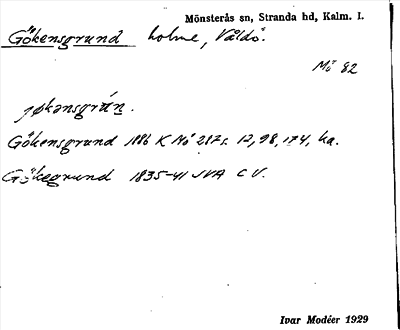 Mönsterås sn, Stranda hd, Kalm. l.
Gökensgrund holme, Våldö.
Mö 82
jøkənsgrán.
Gökensgrund 1886 K Mö 217 s. 12, 98, 174, ka.
Gökegrund 1835-41 JVA C V.
Ivar Modéer 1929